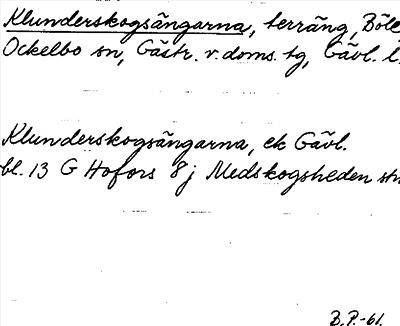 Klunderskogsängarna, terräng, Böle
Ockelbo sn, Gästr. v. doms. tg, Gävl. l.
Klunderskogsängarna, ek Gävl.
bl. 13 G Hofors 8 j Medskogsheden stn
B.P.-61.